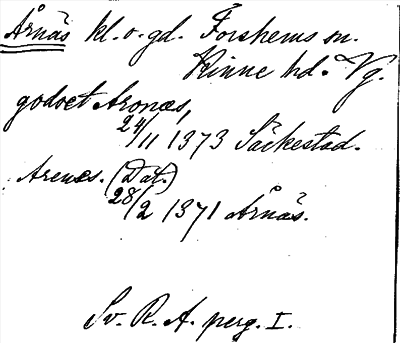 Årnäs kl. o. gd. Forshems sn.
Kinne hd. Vg.
godset Aronæs,
24/11 1373 Säckestad.
Arenæs. (Dat.)
28/2 1371 Årnäs.
Sv. R. A. perg. I.